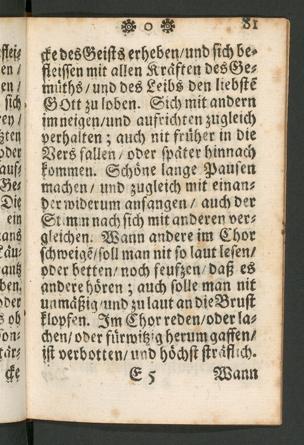 0 81
cke des Geists erheben/und sich be-
fleissen mit allen Kräften des Ge-
müths/und des Leibs den liebstē
GOtt zu loben. Sich mit andern
im neigen/und aufrichten zugleich
verhalten; auch nit früher in die
Vers fallen/oder später hinnach
kommen. Schöne lange Pausen
machen/und zugleich mit einan-
der widerum anfangen/auch der
Stimm nach sich mit anderen ver-
gleichen. Wann andere im Chor
schweigē/soll man nit so laut lesen/
oder betten/noch seufzen/daß es
andere hören; auch solle man nit
unmäßig/und zu laut an die Brust
klopfen. Im Chor reden/oder la-
chen/oder fürwitzig herum gaffen/
ist verbotten/und höchst sträflich.
E 5 Wann